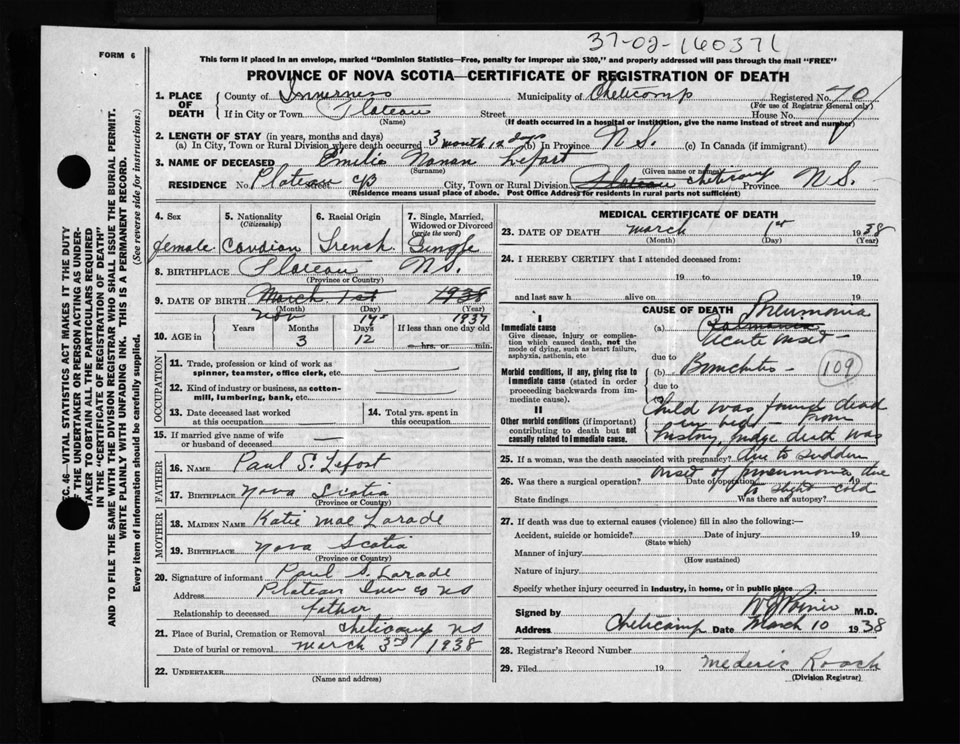 37-02-160371
FORM 6
This form if placed in an envelope, marked "Dominion Statistics—Free, penalty for improper use $300," and properly addressed will pass through the mail "FREE"
PROVINCE OF NOVA SCOTIA—CERTIFICATE OF REGISTRATION OF DEATH
1. PLACE OF DEATH
County of Inverness Municipality of Cheticamp Registered No. 70
(For use of Registrar General only)
If in City or Town Plateau Street House No.
(Name) (If death occurred in a hospital or institution, give the name instead of street and number)
2. LENGTH OF STAY (in years, months and days)
(a) In City, Town or Rural Division where death occurred 3 month 12 days (b) In Province N S. (c) In Canada (if immigrant)
3. NAME OF DECEASED Emilie Nanan Lefort
(Surname) (Given name or names)
RESIDENCE No. Plateau CB Street City, Town or Rural Division Plateau Cheticamp Province N S.
(Residence means usual place of abode. Post Office Address for residents in rural parts not sufficient)
4. Sex 5. Nationality (Citizenship) 6. Racial Origin 7. Single, Married, Widowed or Divorced (write the word)
female Candian French Single
8. BIRTHPLACE Plateau NS.
(Province or Country)
9. DATE OF BIRTH March 1st 1938
(Month) (Day) (Year)
Nov 19 1937
10. AGE in Years Months Days If less than one day old
3 12 hrs. or min.
OCCUPATION
11. Trade, profession or kind of work as spinner, teamster, office clerk, etc.
12. Kind of industry or business, as cotton-mill, lumbering, bank, etc.
13. Date deceased last worked at this occupation
14. Total yrs. spent in this occupation
15. If married give name of wife or husband of deceased
FATHER
16. NAME Paul S. Lefort
17. BIRTHPLACE Nova Scotia
(Province or Country)
MOTHER
18. MAIDEN NAME Katie Mae Larade
19. BIRTHPLACE Nova Scotia
(Province or Country)
20. Signature of informant Paul S. Larade
Address Plateau Inv Co NS
Relationship to deceased father
21. Place of Burial, Cremation or Removal Cheticamp NS
Date of burial or removal March 3rd 1938
22. UNDERTAKER
(Name and address)
MEDICAL CERTIFICATE OF DEATH
23. DATE OF DEATH March 1st 1938
(Month) (Day) (Year)
24. I HEREBY CERTIFY that I attended deceased from:
19 to 19
and last saw h alive on 19
CAUSE OF DEATH
I
Immediate cause
Give disease, injury or complication which caused death, not the mode of dying, such as heart failure, asphyxia, asthenia, etc
(a) Pneumonia
acute onset
due to
Morbid conditions, if any, giving rise to immediate cause (stated in order proceeding backwards from immediate cause).
(b) Bronchitis 109
due to
(c)
II
Other morbid conditions (if important) contributing to death but not causally related to immediate cause.
Child was found dead
in bed - from
history, judge death was
25. If a woman, was the death associated with pregnancy? due to sudden
onset of pneumonia due
26. Was there a surgical operation? Date of operation 19
to slight cold
State findings Was there an autopsy?
27. If death was due to external causes (violence) fill in also the following:—
Accident, suicide or homicide? Date of injury 19
(State which)
Manner of injury
(How sustained)
Nature of injury
Specify whether injury occurred in Industry, in home, or in public place
Signed by M.D.
Address Cheticamp Date March 10 1938
28. Registrar's Record Number
29. Filed 19 Mederic Roach
(Division Registrar)
SEC. 46—VITAL STATISTICS ACT MAKES IT THE DUTY
OF THE UNDERTAKER OR PERSON ACTING AS UNDERTAKER TO OBTAIN ALL THE PARTICULARS REQUIRED
IN THE "CERTIFICATE OF REGISTRATION OF DEATH"
AND TO FILE THE SAME WITH THE DIVISION REGISTRAR WHO SHALL ISSUE THE BURIAL PERMIT.
WRITE PLAINLY WITH UNFADING INK. THIS IS A PERMANENT RECORD.
Every item of information should be carefully supplied. (See reverse side for instructions.)